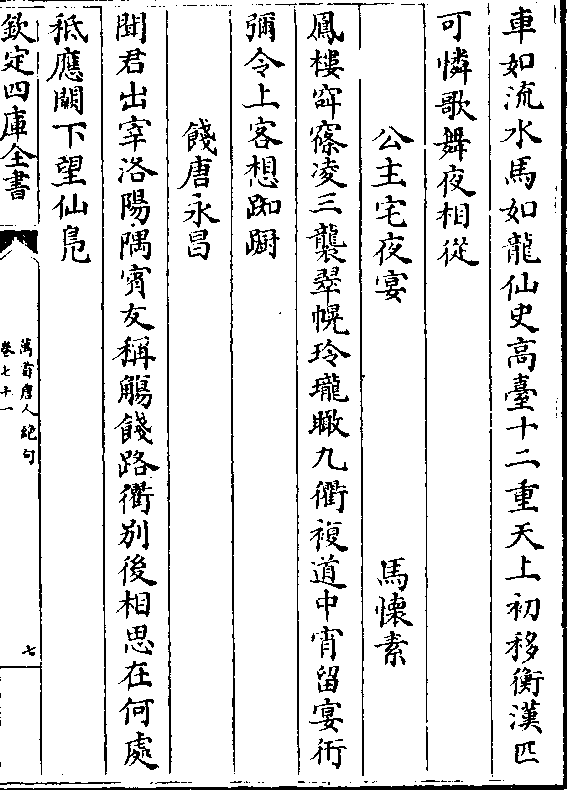 車如流水馬如龍仙史高臺十二重天上初移衡漢匹
可憐歌舞夜相從
公主宅夜宴　馬懷素
鳳樓凌三襲翠幌玲瓏瞰九衢複道中宵留宴衎
彌令上客想踟蹰
餞唐永昌
聞君出宰洛陽隅賓友稱觴餞路衢別後相思在何處
秪應闕下望仙鳧
欽定四庫全書
萬首唐人絶句
卷七十一
七